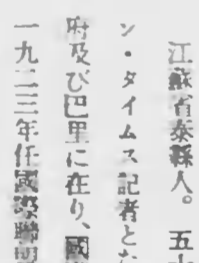 江蘇省泰縣人。五
ン・タイムス記者とな
府及び巴里に在り、國
一九二三年任國際聯